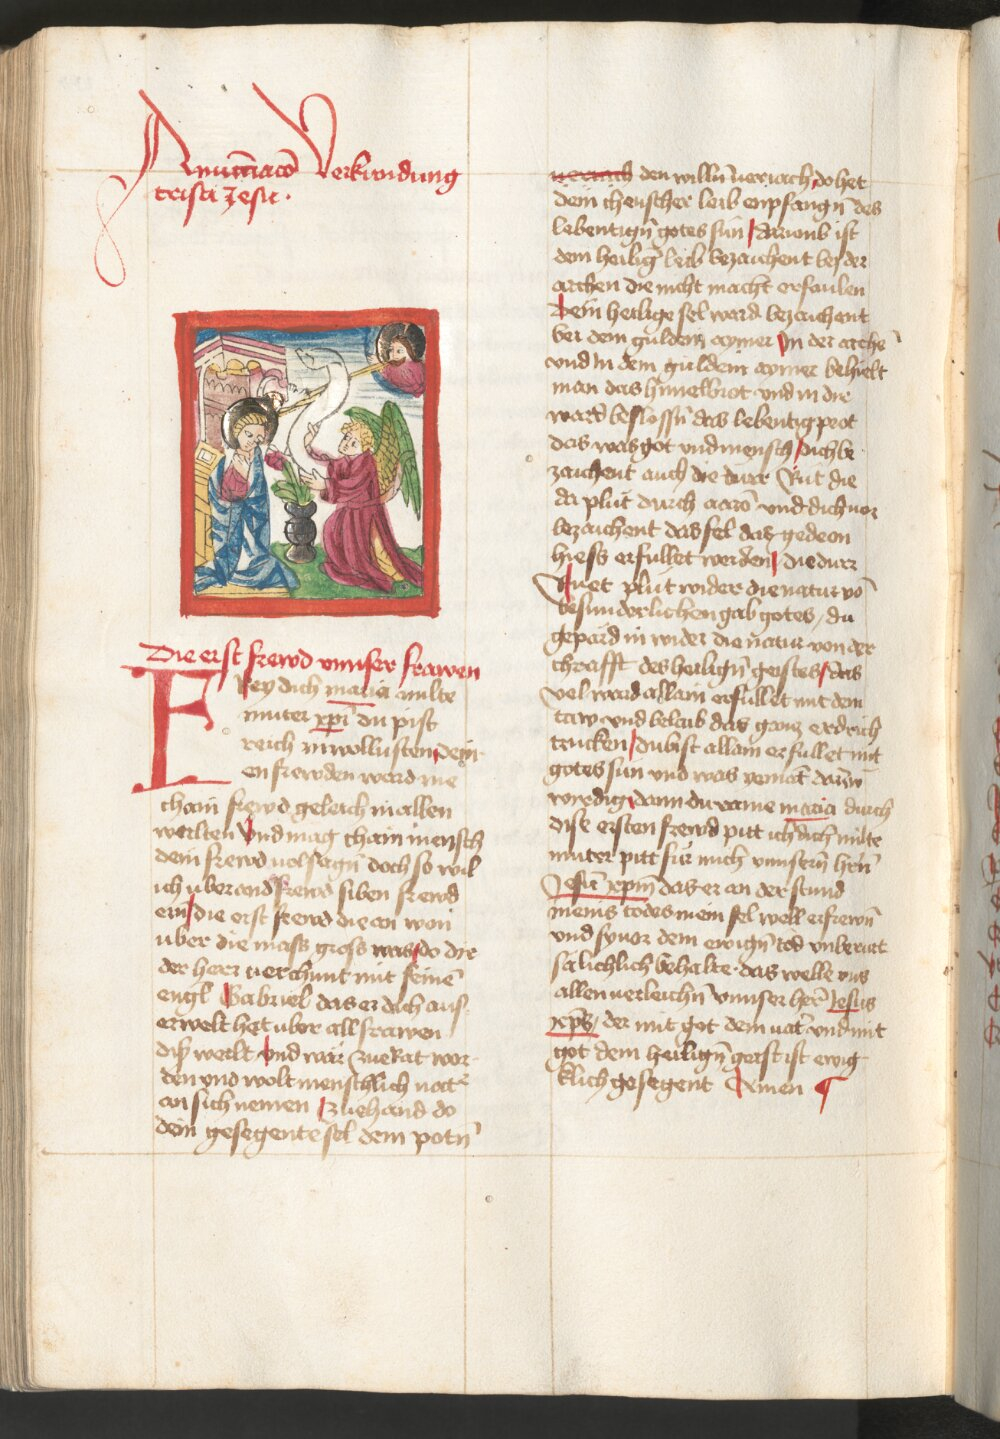 Annunciacō Verkundung
cristi Jesu.
Die erst frewd unnser frawen
Frey dich maria milte
muter xpi du pist
reich in wollusten, dein
en frewden ward nie
chain frewd geleich in allen
werlten Vnd mag chain mensch
dein frewd volsagn̄ doch so wil
ich uber and frewd siben frewd
ern / die erst frewd die on won
uber die mass gross was do dir
der herr verchunt mit seinē
engl Gabriel das er dich aus
erwelt het uber all frawen
diſz werlt Vnd wär zue Rat wor
den vnd wolt menschlich natr
an sich nemen / Zuehand do
dein gesegente sel dem potn̄
den willn̄ veriach, do het
dein cheuscher leib enpfangn̄ des
lebentign̄ gotes sun / darumb ist
dein heilig leib bezaichent bey der
archen die nicht macht erfaulen
Dein heilige sel ward bezaichent
bei dem guldein aymer In der archē
vnd in dem guldein aymer behielt
man das himelbrot vnd in die
ward beslossn̄ das lebentig prot
das was got vnd mensch / dich be
zaichent auch die durr Rut die
da plut durch aarō vnd dich vor
bezaichent das fel das gedeon
hiess erfullet werden / die durr
Ruet plut wider die natur vō
besunderlichen gab gotes / du
gepard in wider die natur von der
chrafft des heilign̄ geistes / das
vel ward allain erfullet mit dem
taw vnd beleib das ganz erdrich
trucken / du bist allain erfullet mit
gotes sun vnd was niemāt darūb
wirdig, dann du raine maria durch
dise ersten frewd pitt ich dich milte
muter pitt für mich vnnsern̄ hrn̄
Jesū xp̄m das er an der stund
meins todes mein sel well erfrewn̄
vnd sy vor dem ewign̄ tod vnberuet
salichlich behalte. das welle vns
allen verleichn̄ vnnser her Jesus
xp̄s / der mit got dem vatr̄ vnd mit
got dem heilign̄ geist ist ewig
klich gesegent Amen